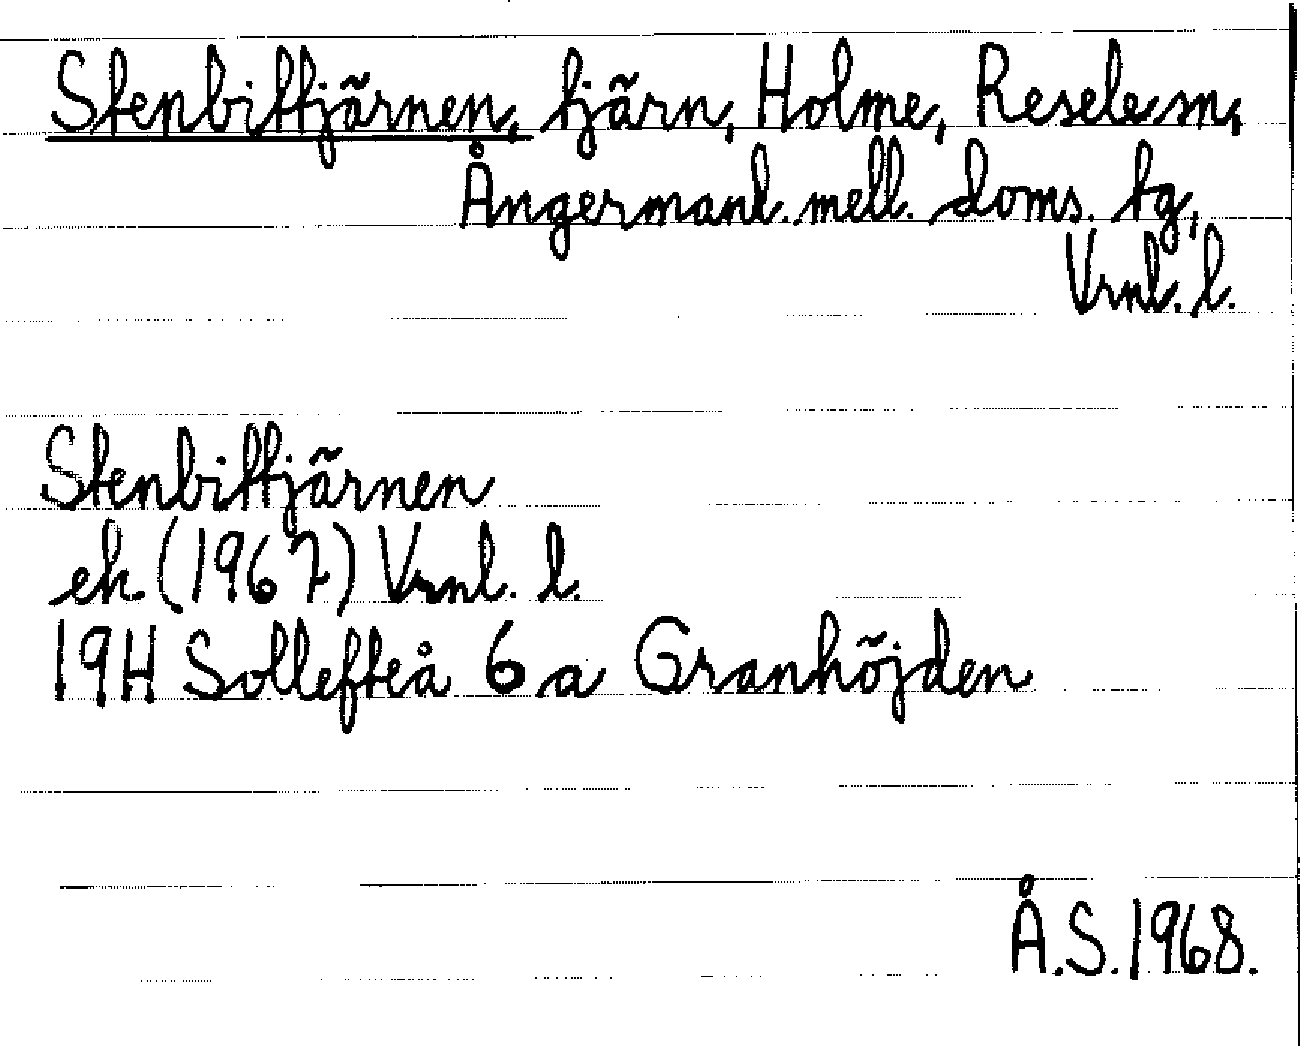 Stenbittjärnen, tjärn, Holme, Resele sn,
Ångermanl. mell. doms. tg,
Vrnl. l.
Stenbittjärnen
ek. (1967) Vrnl. l.
19H Sollefteå 6 a Granhöjden
Å.S. 1968.